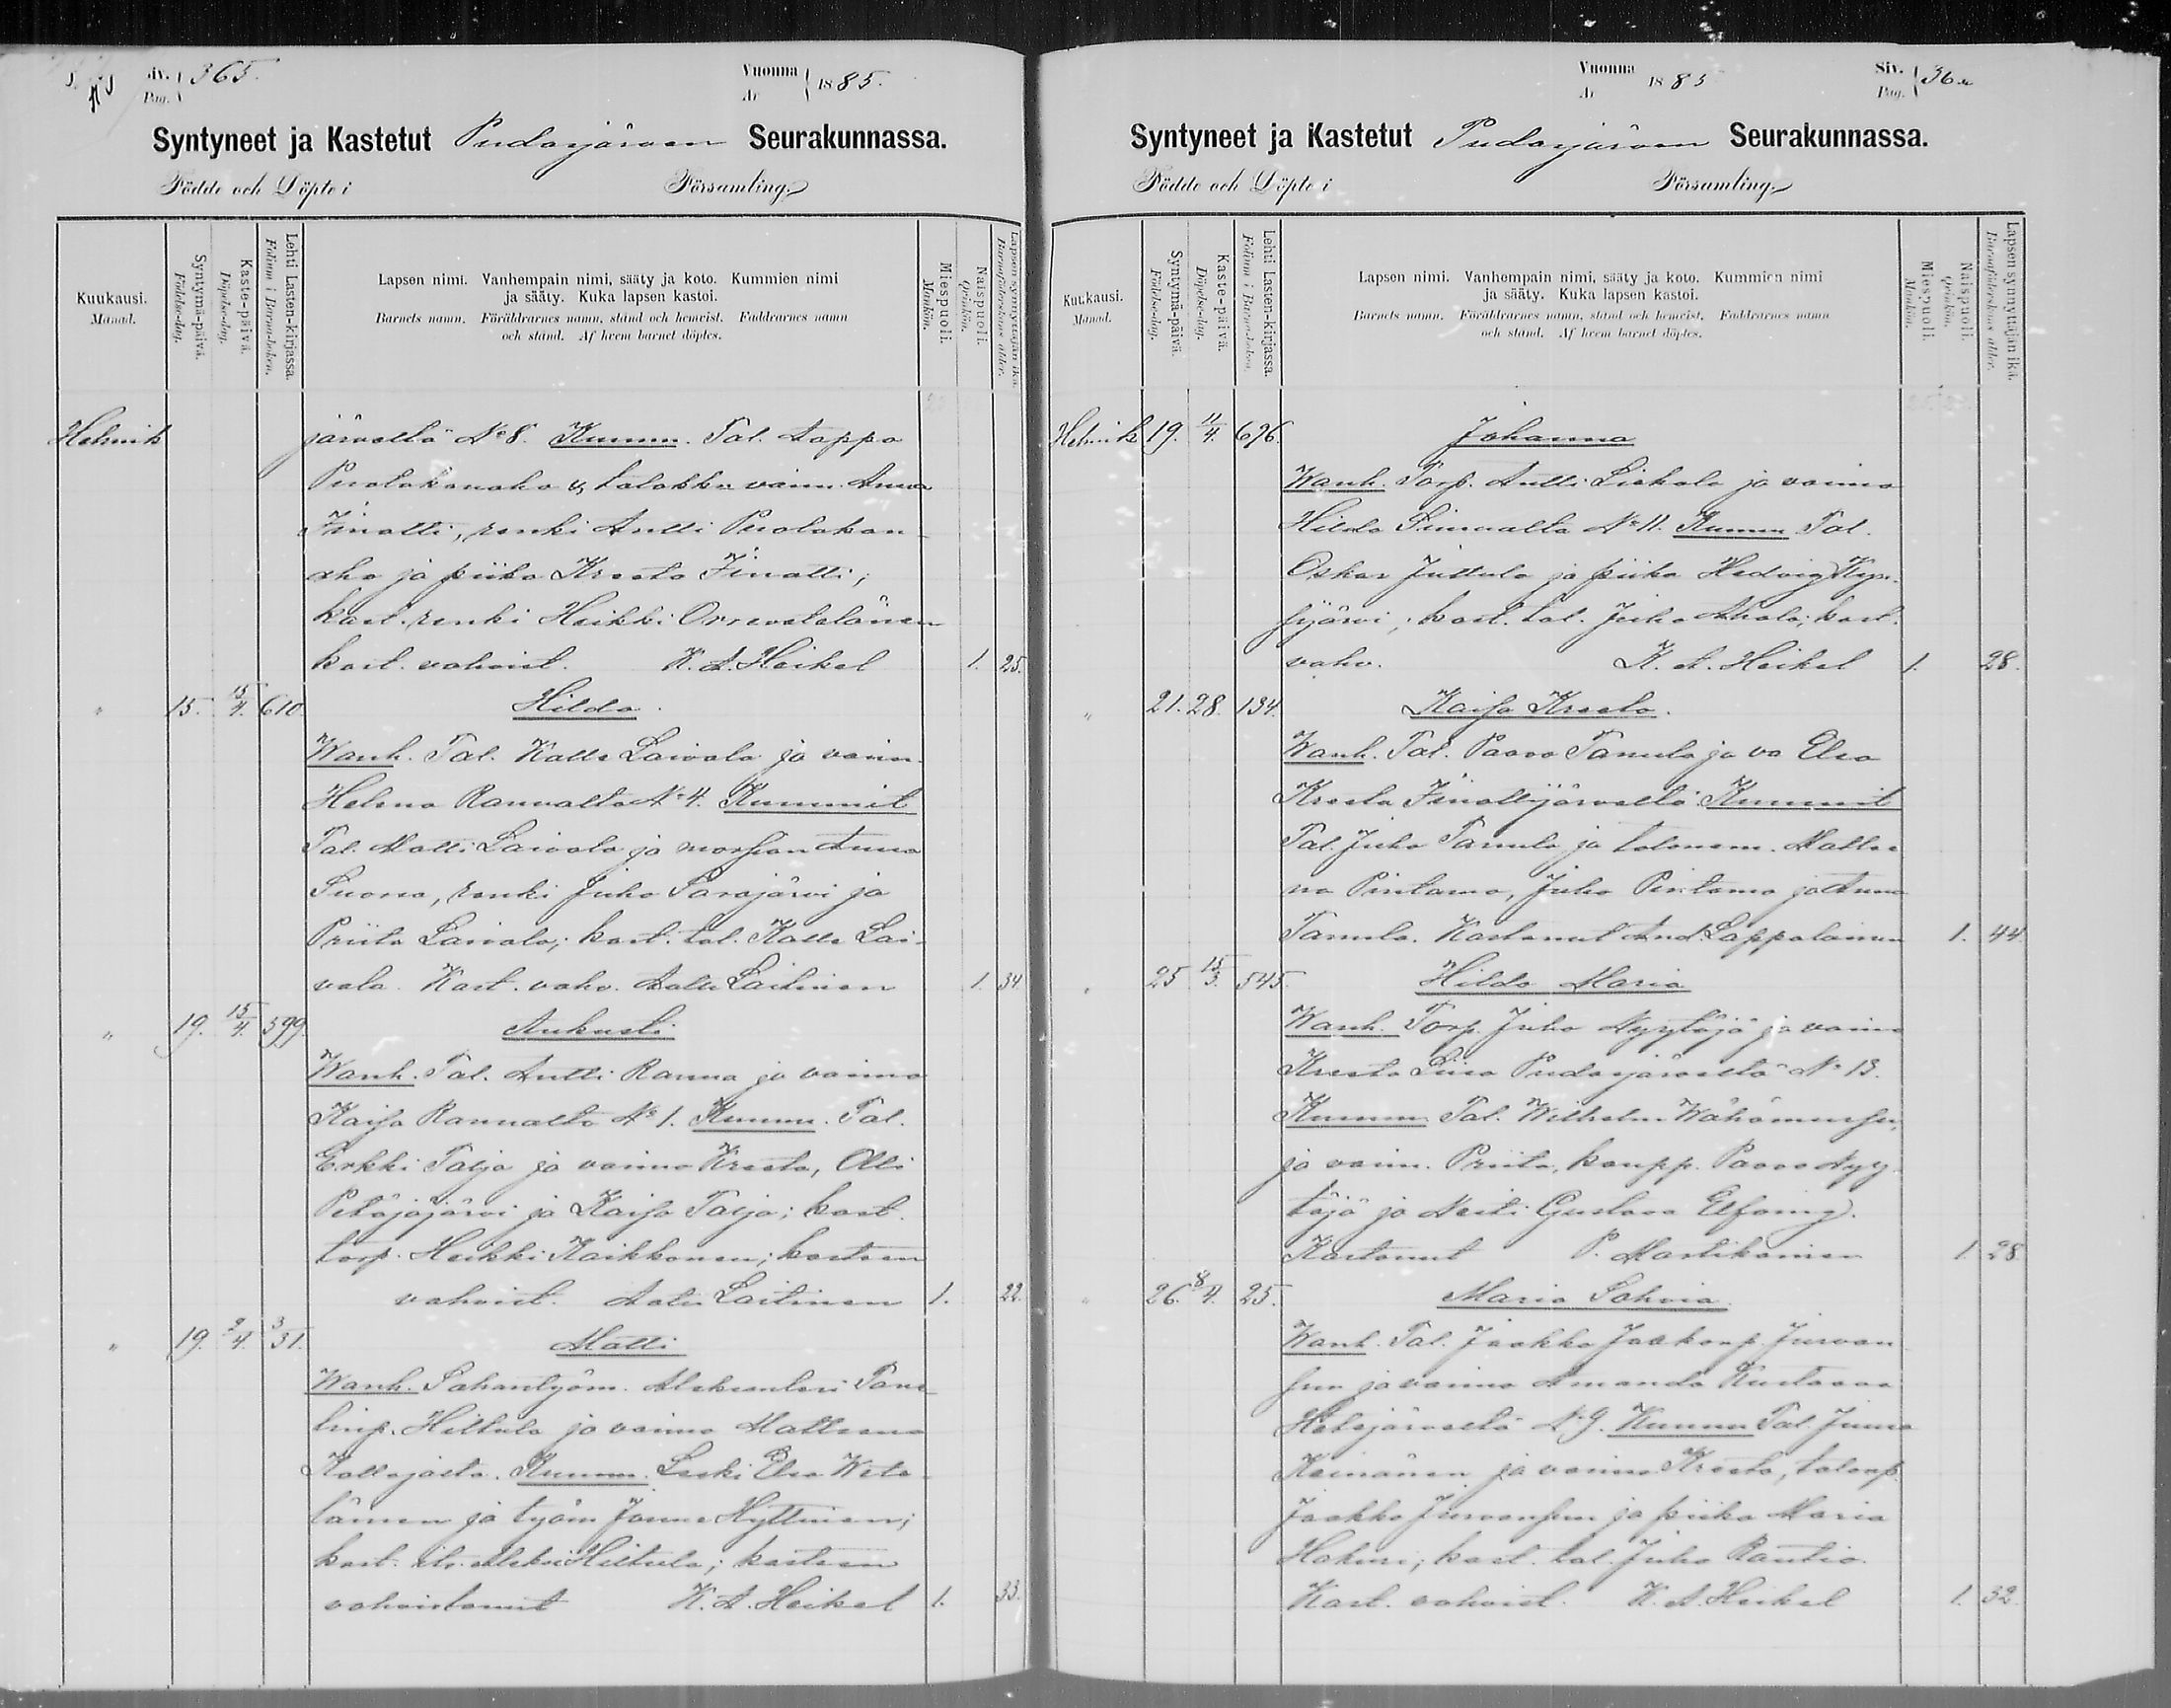 Siv. Pag. 365.
Vuonna År 1885.
Syntyneet ja Kastetut Pudasjärven Seurakunnassa.
Födde och Döpte i Församling.
Kuukausi. Månad.
Syntymä-päivä. Födelse-dag.
Kaste-päivä. Döpelse-dag.
Lehti Lasten-kirjassa. Folium i Barna-boken.
Lapsen nimi. Vanhempain nimi, sääty ja koto. Kummien nimi
ja sääty. Kuka lapsen kastoi.
Barnets namn. Föräldrarnes namn, stånd och hemvist. Faddrarnes namn
och stånd. Af hvem barnet döptes.
Miespuoli. Mankön.
Naispuoli. Qvinkön.
Lapsen synnyttäjän ikä. Barnaföderskans ålder.
Helmik järveltä No 8. Kumm. Tal. Tappo
Puolakanaho ja talokkn vaim. Anna
Iinatti, renki Antti Puolakan-
aho ja piika Kreeta Iinatti;
kast. renki Heikki
kast. vahvist. K. A. Heikel 1. 25.
" 15. 15/4. 610. Hilda.
Wanh. Tal. Kalle Laivala ja vaim.
Helena Ranualta No 4. Kummit
Tal. Matti Laivala ja morsian Anna
Suorsa, renki Juho Sarajärvi ja
Priita Laivala; kast. tal. Kalle Lai-
vala. Kast. vahv. Aatu Laitinen 1. 34.
" 19. 15/4. 599. Aukusti
Wanh. Tal. Antti Ranua ja vaimo
Kaisa Ranualta No 1. Kumm. Tal.
Erkki Taija ja vaimo Kreeta, Olli
Petäjäjärvi ja Kaisa Taija; kast.
torp. Heikki Kaikkonen; kasteen
vahvist. Aatu Laitinen 1. 22.
" 19. 2/4. 331. Matti
Wanh. Sahantyöm. Aleksanteri Tane-
linp. Hiltula ja vaimo Matleena
Kollajasta. Kumm. Leski Elsa Wete-
läinen ja työm Janne Hyttinen;
kast. its. Aleksi Hiltula; kasteen
vahvistanut K. A. Heikel 1. 33.
Vuonna År 1885
Siv. Pag. 36
Syntyneet ja Kastetut Pudasjärven Seurakunnassa.
Födde och Döpte i Församling.
Kuukausi. Månad.
Syntymä-päivä. Födelse-dag.
Kaste-päivä. Döpelse-dag.
Lehti Lasten-kirjassa. Folium i Barna-boken.
Lapsen nimi. Vanhempain nimi, sääty ja koto. Kummien nimi
ja sääty. Kuka lapsen kastoi.
Barnets namn. Föräldrarnes namn, stånd och hemvist. Faddrarnes namn
och stånd. Af hvem barnet döptes.
Miespuoli. Mankön.
Naispuoli. Qvinkön.
Lapsen synnyttäjän ikä. Barnaföderskans ålder.
Helmik 19. 11/4. 696. Johanna
Wanh. Torp. Antti Liekala ja vaimo
Hilda Siurualta No 11. Kumm Tal.
Oskar Juttula ja piika Hedvig Kyn-
sijärvi; kast. tal. Juho Ahola; kast.
vahv. K. A. Heikel 1. 28.
" 21. 28. 134. Kaisa Kreeta.
Wanh. Tal. Paavo Tanula ja va Elsa
Kreeta Iinattijärveltä Kummit
Tal. Juho Tanula ja talonem. Matlee
na Pintamo, Juho Pintamo ja Anna
Tanula. Kastanut And. Lappalainen 1. 44
" 25 15/3. 545. Hilda Maria
Wanh. Torp. Juho Nyytäjä ja vaimo
Kreeta Liisa Pudasjäreltä No 13.
Kumm Tal. Wilhelm
ja vaim. Priita, kaupp. Paavo Nyy-
täjä ja Neiti Gustava Elfving.
Kastanut P. Martikainen 1. 28.
" 26. 8/4. 25. Maria Sohvia
Wanh. Tal. Jaakko Jaakonp. Jurvan
sun ja vaimo Amanda Kustaava
Hetejärveltä No 9. Kumm Tal. Junno
Keinänen ja vaimo Kreeta, talonp.
Jaakko Jurvansuu ja piika Maria
kast. tal. Juho Rautio.
Kast. vahvist. K. A. Heikel 1. 32.